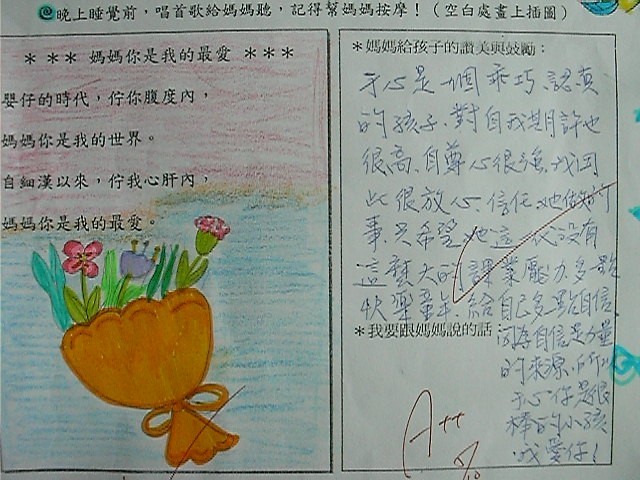 晚上睡覺前，唱首歌給媽媽聽，記得幫媽媽按摩！（空白處畫上插圖）
＊＊＊ 媽媽你是我的最愛 ＊＊＊
嬰仔的時代，佇你腹度內，
媽媽你是我的世界。
自細漢以來，佇我心肝內，
媽媽你是我的最愛。
＊媽媽給孩子的讚美與鼓勵：
心是一個乖巧、認真
的孩子、對自我期許也
很高、自尊心很強、我因
此很放心、信任她做的
事、只希望她這 沒有
這麼大的課業壓力、多點
快樂童年、給自己多點自信
因為自信是力量
的來源、所以
心你是很
棒的小孩
我愛你！
＊我要跟媽媽說的話
A++
5/10